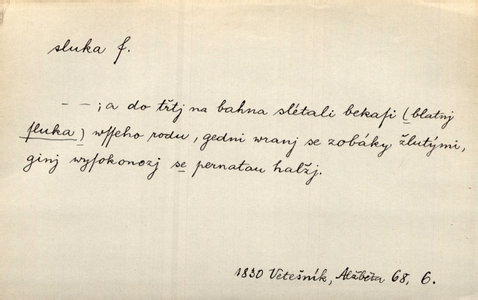 sluka f.
– – ; a do třtj na bahna slétali bekasi (blatnj
sluka) wsseho rodu, gedni wranj se zobáky žlutými,
ginj wysokonozj se pernatau halžj.
1830 Vetešník, Alžběta 68, 6.